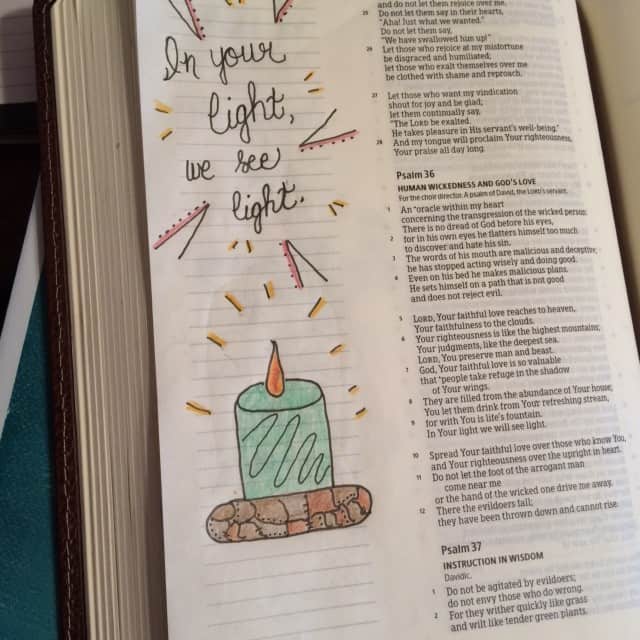 In your
light,
we see
light.
and do not let them rejoice over me.
25 Do not let them say in their hearts,
"Aha! Just what we wanted."
Do not let them say,
"We have swallowed him up!"
26 Let those who rejoice at my misfortune
be disgraced and humiliated;
let those who exalt themselves over me
be clothed with shame and reproach.
27 Let those who want my vindication
shout for joy and be glad;
let them continually say,
"The LORD be exalted.
He takes pleasure in His servant's well-being."
28 And my tongue will proclaim Your righteousness,
Your praise all day long.
Psalm 36
HUMAN WICKEDNESS AND GOD'S LOVE
For the choir director. A psalm of David, the LORD's servant.
1 An oracle within my heart
concerning the transgression of the wicked person:
There is no dread of God before his eyes,
2 for in his own eyes he flatters himself too much
to discover and hate his sin.
3 The words of his mouth are malicious and deceptive;
he has stopped acting wisely and doing good.
4 Even on his bed he makes malicious plans.
He sets himself on a path that is not good
and does not reject evil.
5 LORD, Your faithful love reaches to heaven,
Your faithfulness to the clouds.
6 Your righteousness is like the highest mountains;
Your judgments, like the deepest sea.
LORD, You preserve man and beast.
7 God, Your faithful love is so valuable
that people take refuge in the shadow
of Your wings.
8 They are filled from the abundance of Your house;
You let them drink from Your refreshing stream,
9 for with You is life's fountain.
In Your light we will see light.
10 Spread Your faithful love over those who know You,
and Your righteousness over the upright in heart.
11 Do not let the foot of the arrogant man
come near me
or the hand of the wicked one drive me away.
12 There the evildoers fall;
they have been thrown down and cannot rise.
Psalm 37
INSTRUCTION IN WISDOM
Davidic.
1 Do not be agitated by evildoers;
do not envy those who do wrong.
2 For they wither quickly like grass
and wilt like tender green plants.